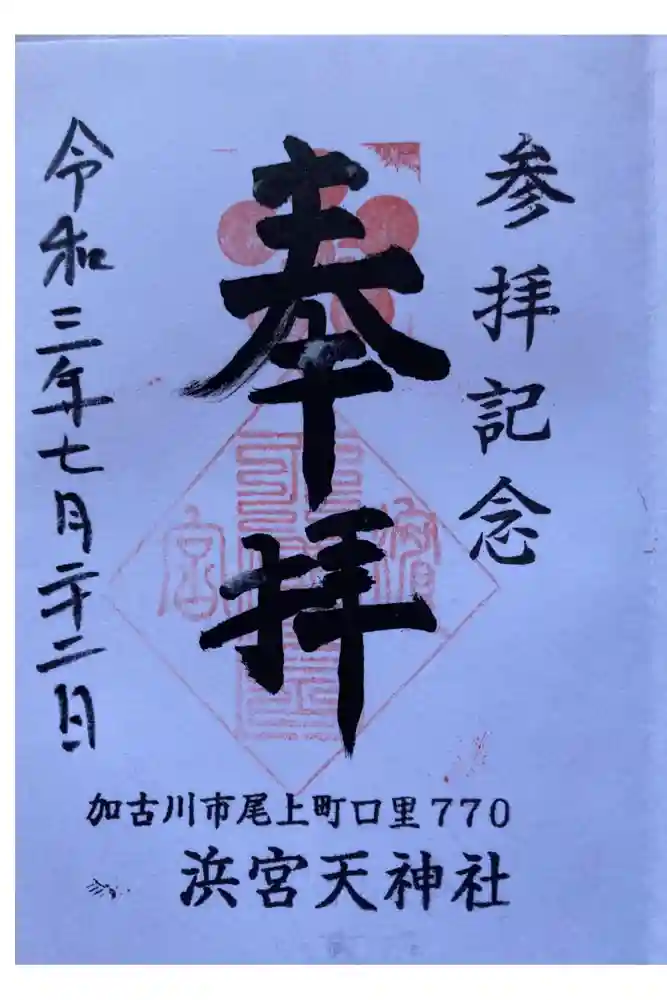 参拝記念
奉拝
濱宮
令和三年七月二十二日
加古川市尾上町口里770
浜宮天神社